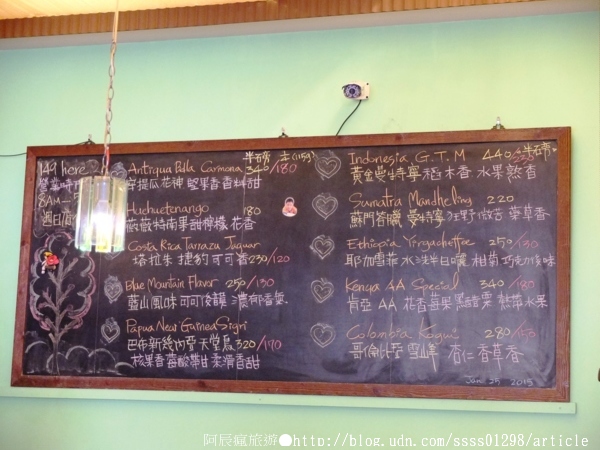 149 here
營業時間
8AM
週日
半磅 卡(115g)
Antigua Pulla Carmona 340/180
安提瓜花神 堅果香 香料甜
Huehuetenango 180
薇薇特南果 甜檸檬 花香
Costa Rica Tarrazu Jaguar
塔拉生 捷豹 可可香 230/120
Blue Mountain Flavor 250/130
藍山風味 可可後韻 濃郁香氣
Papua New Guinea Sigri
巴布新幾內亞 天堂鳥 320/170
核果香 莓酸樂甘 柔滑香甜
Indonesia G.T.M 440/230
半磅
黃金曼特寧 稻木香 水果熟香
Sumatra Mandheling 220
蘇門答臘 曼特寧 狂野微苦 藥草香
Ethiopia Yirgacheffe 250/130
耶加雪菲 水洗 半日曬 柑菊 巧克力後味
Kenya AA Special 340/180
肯亞 AA 花香莓果 黑醋栗 熱帶水果
Colombia Kogui 280/150
哥倫比亞 雪峰 杏仁香草香
Jan 25 2015
阿辰瘋旅遊●http://blog.udn.com/ssss01298/article